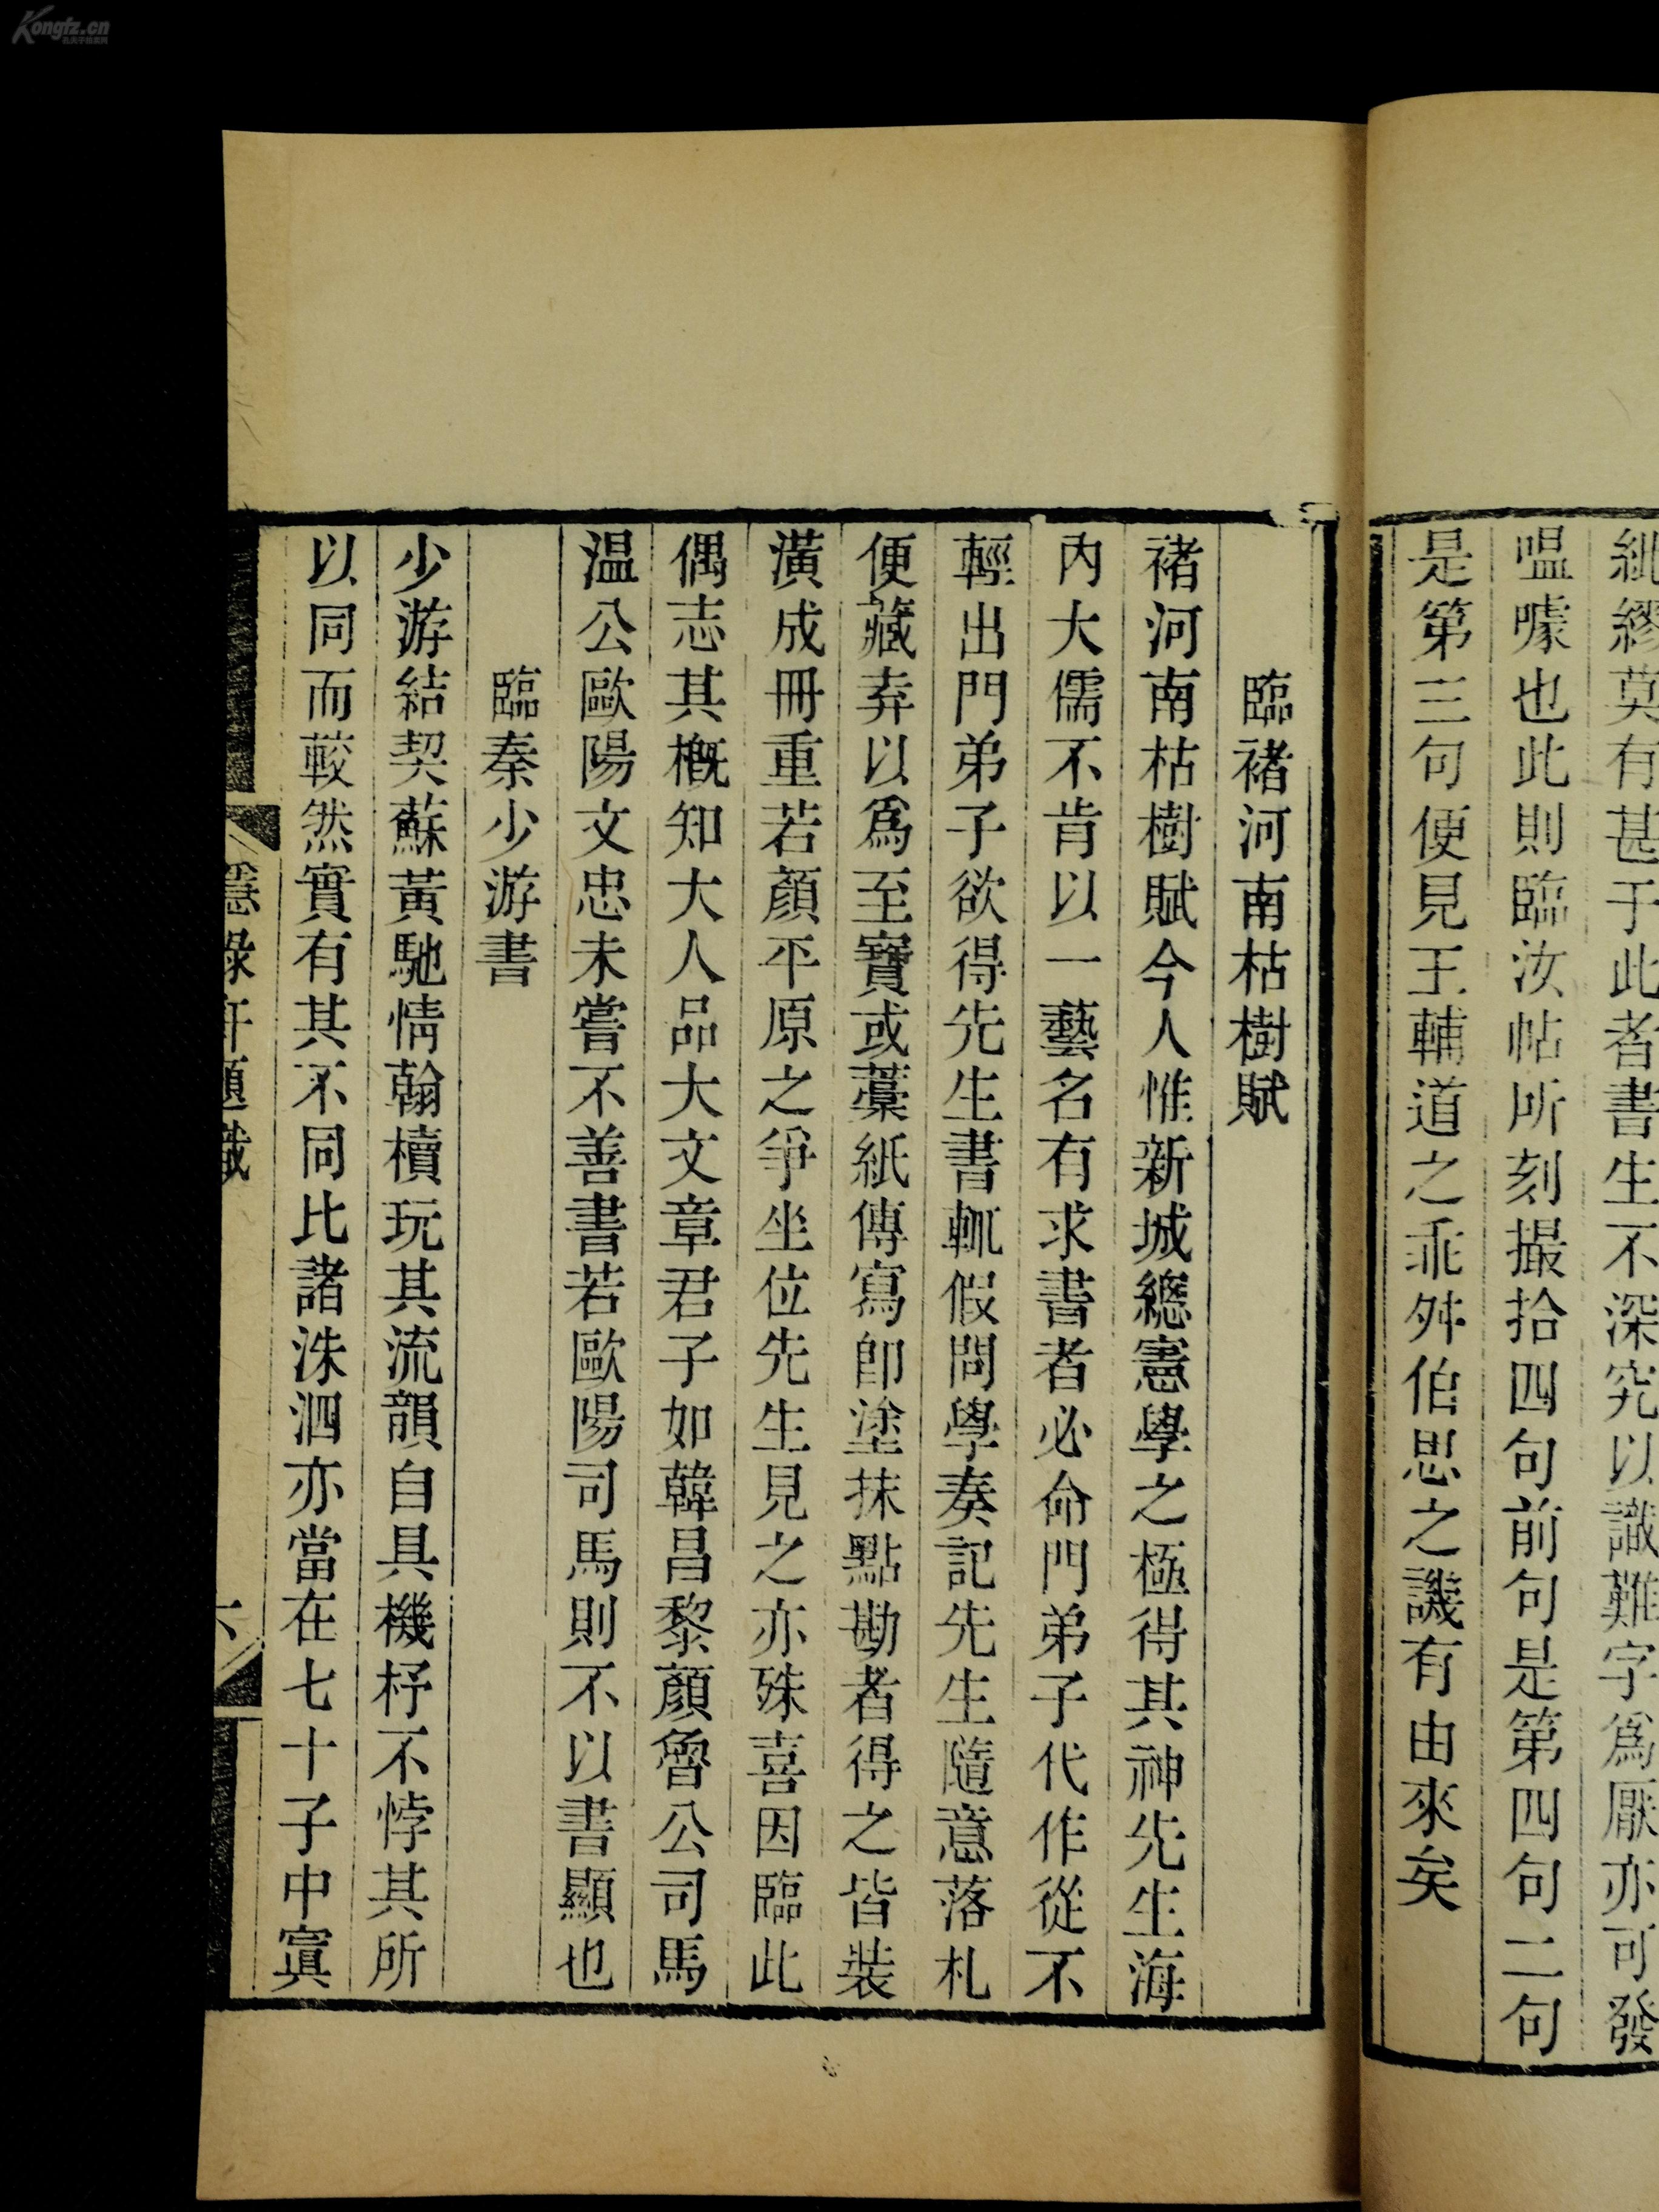 紕繆莫有甚于此者書生不深究以識難字爲厭亦可發
嗢噱也此則臨汝帖所刻撮拾四句前句是第四句二句
是第三句便見王輔道之乖舛伯思之譏有由來矣
臨褚河南枯樹賦
褚河南枯樹賦今人惟新城總憲學之極得其神先生海
內大儒不肯以一藝名有求書者必命門弟子代作從不
輕出門弟子欲得先生書輒假問學奏記先生隨意落札
便藏弆以爲至寶或藁紙傳寫卽塗抹點勘者得之皆裝
潢成冊重若顏平原之爭坐位先生見之亦殊喜因臨此
偶志其槪知大人品大文章君子如韓昌黎顏魯公司馬
温公歐陽文忠未嘗不善書若歐陽司馬則不以書顯也
臨秦少游書
少游結契蘇黃馳情翰櫝玩其流韻自具機杼不悖其所
以同而較然實有其不同比諸洙泗亦當在七十子中寘
隱綠軒題識
六
Kongfz.cn